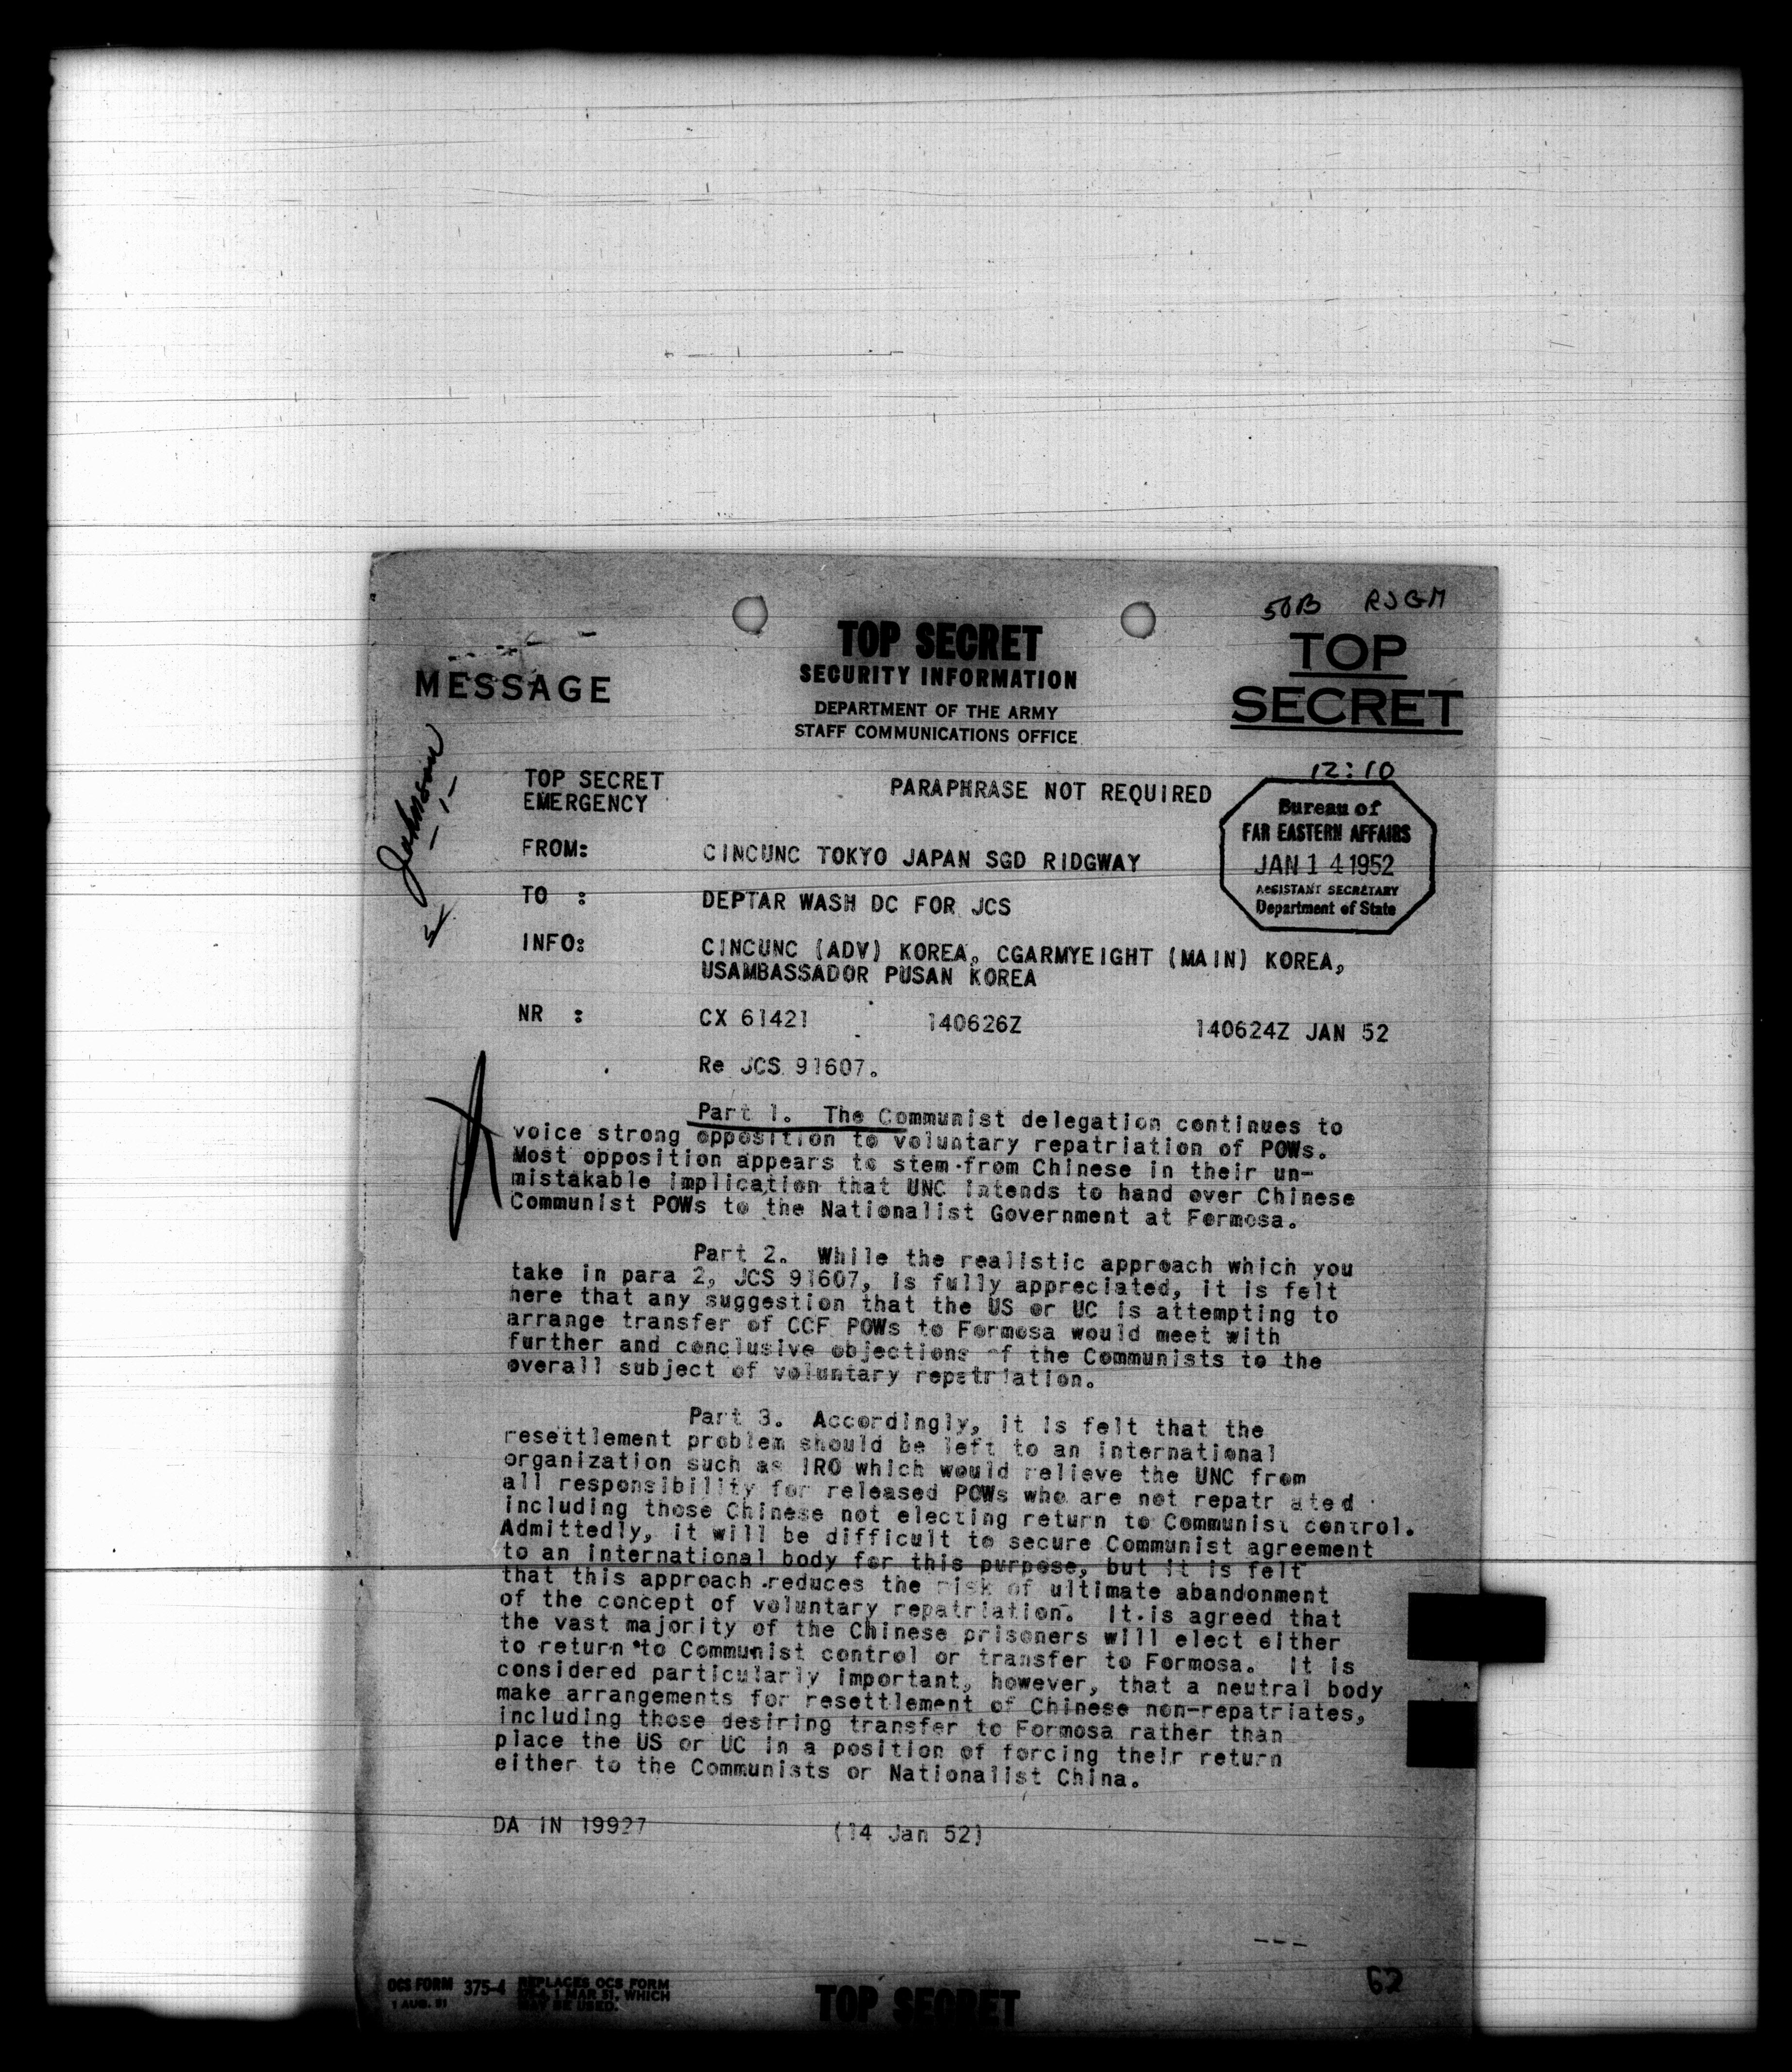 50B RJGM
TOP SECRET
SECURITY INFORMATION
DEPARTMENT OF THE ARMY
STAFF COMMUNICATIONS OFFICE
MESSAGE
TOP
SECRET
Johnson
TOP SECRET
EMERGENCY
PARAPHRASE NOT REQUIRED
12:10
Bureau of
FAR EASTERN AFFAIRS
JAN 14 1952
ASSISTANT SECRETARY
Department of State
FROM: CINCUNC TOKYO JAPAN SGD RIDGWAY
TO : DEPTAR WASH DC FOR JCS
INFO: CINCUNC (ADV) KOREA, CGARMYEIGHT (MAIN) KOREA,
USAMBASSADOR PUSAN KOREA
NR : CX 61421 140626Z 140624Z JAN 52
Re JCS 91607.
Part 1. The Communist delegation continues to
voice strong opposition to voluntary repatriation of POWs.
Most opposition appears to stem from Chinese in their un-
mistakable implication that UNC intends to hand over Chinese
Communist POWs to the Nationalist Government at Formosa.
Part 2. While the realistic approach which you
take in para 2, JCS 91607, is fully appreciated, it is felt
here that any suggestion that the US or UC is attempting to
arrange transfer of CCF POWs to Formosa would meet with
further and conclusive objections of the Communists to the
overall subject of voluntary repatriation.
Part 3. Accordingly, it is felt that the
resettlement problem should be left to an international
organization such as IRO which would relieve the UNC from
all responsibility for released POWs who are not repatr ated
including those Chinese not electing return to Communist control.
Admittedly, it will be difficult to secure Communist agreement
to an international body for this purpose, but it is felt
that this approach reduces the risk of ultimate abandonment
of the concept of voluntary repatriation. It is agreed that
the vast majority of the Chinese prisoners will elect either
to return to Communist control or transfer to Formosa. It is
considered particularly important, however, that a neutral body
make arrangements for resettlement of Chinese non-repatriates,
including those desiring transfer to Formosa rather than
place the US or UC in a position of forcing their return
either to the Communists or Nationalist China.
DA IN 19927 (14 Jan 52)
62
OCS FORM 375-4 REPLACES OCS FORM
1 AUG. 51 1 MAR 51, WHICH
MAY BE USED.
TOP SECRET